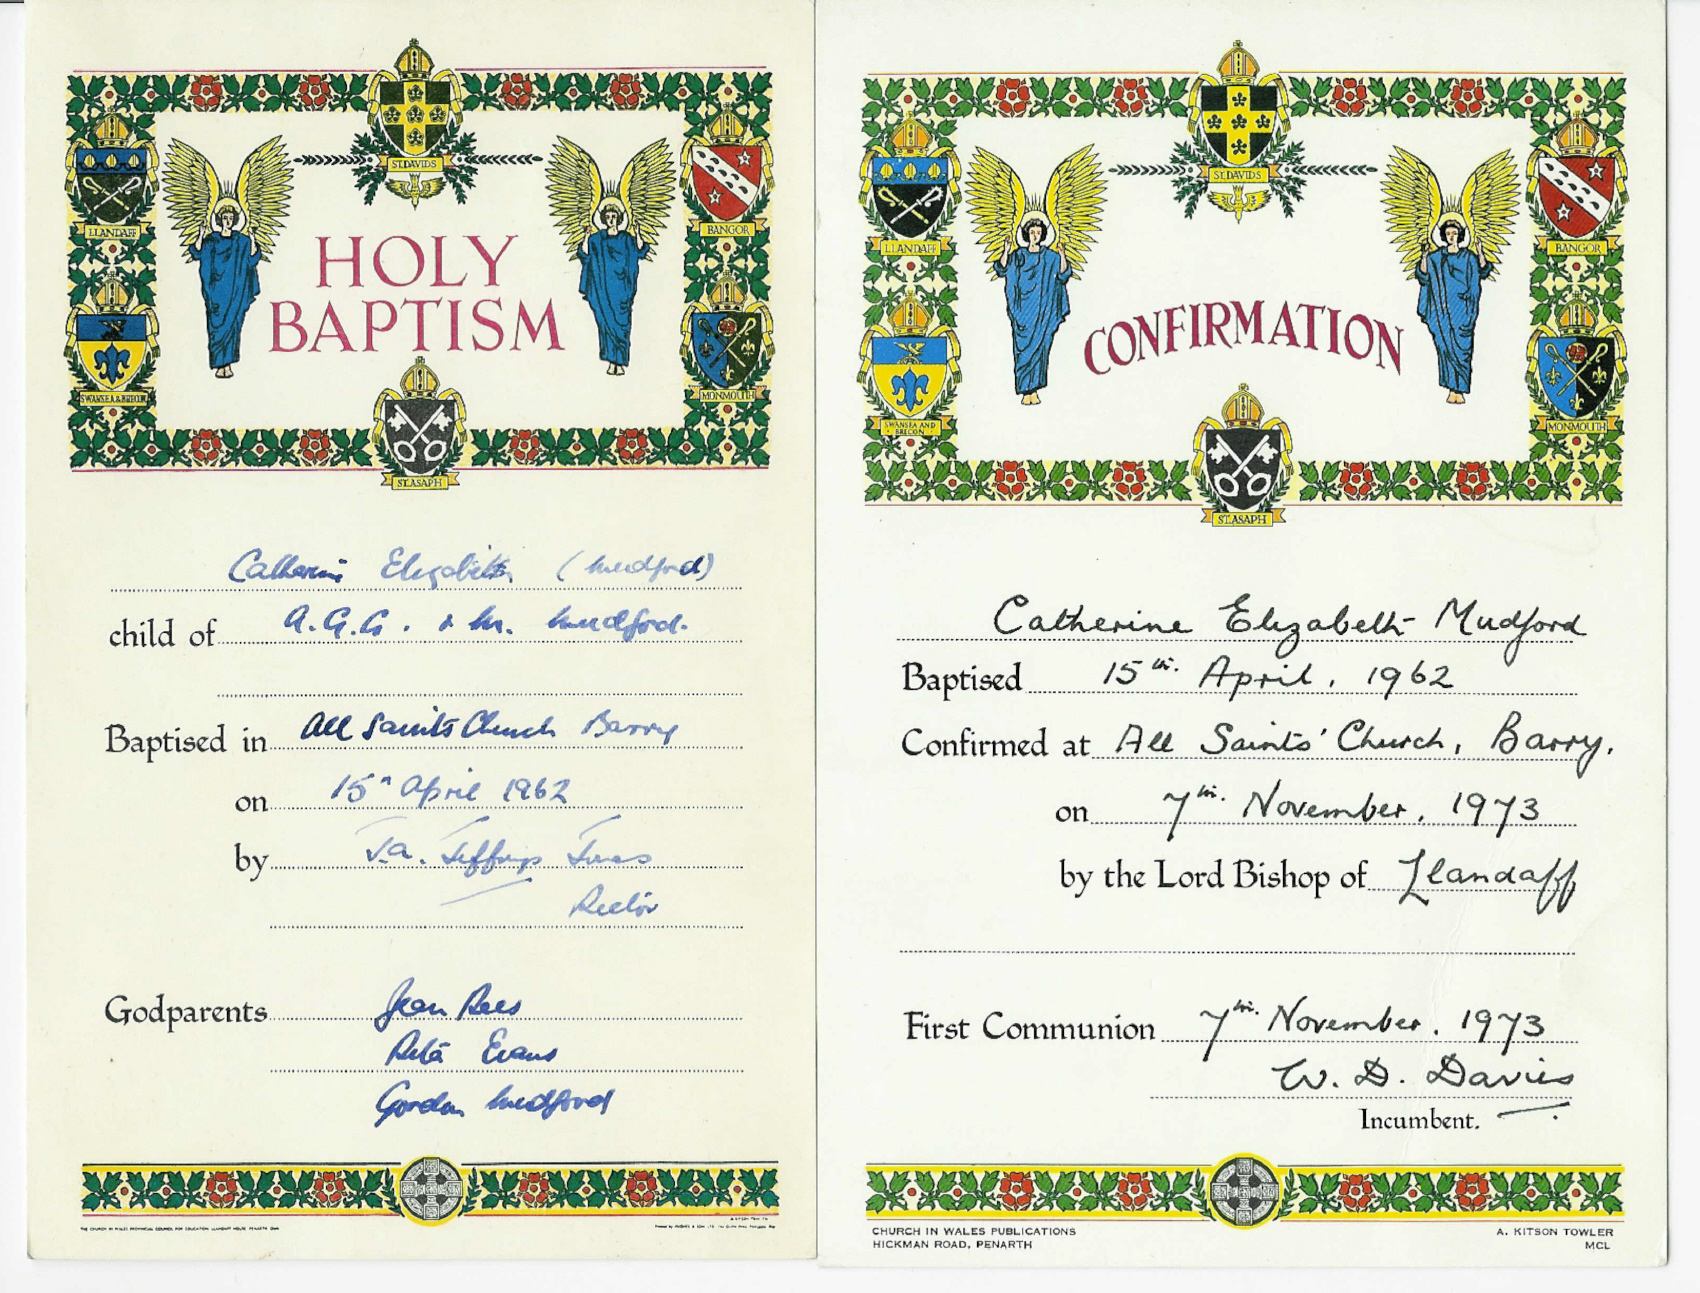 ST.DAVIDS
LLANDAFF
BANGOR
HOLY
BAPTISM
SWANSEA & BRECON
MONMOUTH
ST.ASAPH
Catherine Elizabeth (Mudford)
child of A.G.G. & M. Mudford.
Baptised in All Saints Church Barry
on 15th April 1962
by J.A. Jeffreys
Rector
Godparents Jean Rees
Rita Evans
Gordon Mudford
THE CHURCH IN WALES PROVINCIAL COUNCIL FOR EDUCATION LLANDAFF HOUSE PENARTH
ST.DAVIDS
LLANDAFF
BANGOR
CONFIRMATION
SWANSEA AND
BRECON
MONMOUTH
ST.ASAPH
Catherine Elizabeth Mudford
Baptised 15th. April, 1962
Confirmed at All Saints' Church, Barry.
on 7th. November, 1973
by the Lord Bishop of Llandaff
First Communion 7th. November, 1973
W. D. Davies
Incumbent.
CHURCH IN WALES PUBLICATIONS
HICKMAN ROAD, PENARTH
A. KITSON TOWLER
MCL